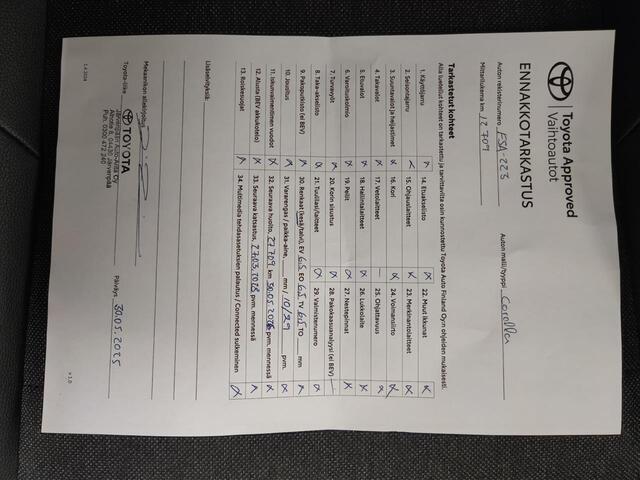 Toyota Approved
Vaihtoautot
ENNAKKOTARKASTUS
Auton rekisterinumero FSA-223 Auton malli/tyyppi Corolla
Mittarilukema km 12709
Tarkastetut kohteet
Alla luetellut kohteet on tarkastettu ja tarvittavilta osin kunnostettu Toyota Auto Finland Oy:n ohjeiden mukaisesti.
1. Käyttöjarru 14. Etuakselisto 22. Muut ikkunat
2. Seisontajarru 15. Ohjauslaitteet 23. Merkinantolaitteet
3. Suuntavalot ja heijastimet 16. Kori 24. Voimansiirto
4. Takavalot 17. Vetolaitteet 25. Ohjattavuus
5. Etuvalot 18. Hallintalaitteet 26. Lukkolaite
6. Varoituskolmio 19. Peilit 27. Nestepinnat
7. Turvavyöt 20. Korin sisustus 28. Pakokaasuanalyysi (ei BEV)
8. Taka-akselisto 21. Tuulilasi/laitteet 29. Valmistenumero
9. Pakoputkisto (ei BEV) 30. Renkaat (kesä/talvi), EV 6.5 EO 6.5 TV 6.5 TO mm
10. Jousitus 31. Vararengas / paikka-aine, mm / 10/29 pvm.
11. Iskunvaimentimen vuodot 32. Seuraava huolto, 27709 km 30.05.2026 pvm. mennessä
12. Alusta (BEV akkukotelo) 33. Seuraava katsastus, 27.03.2026 pvm. mennessä
13. Roiskesuojat 34. Multimedia tehdasasetuksien palautus / Connected sulkeminen
Lisäselvityksiä:
Mekaanikon allekirjoitus
Toyota-liike TOYOTA Päiväys 30.05.2025
Järvenpään Auto-Arita Oy
04430 Järvenpää
Puh. 0200 472 240
1.4.2024 v 1.0